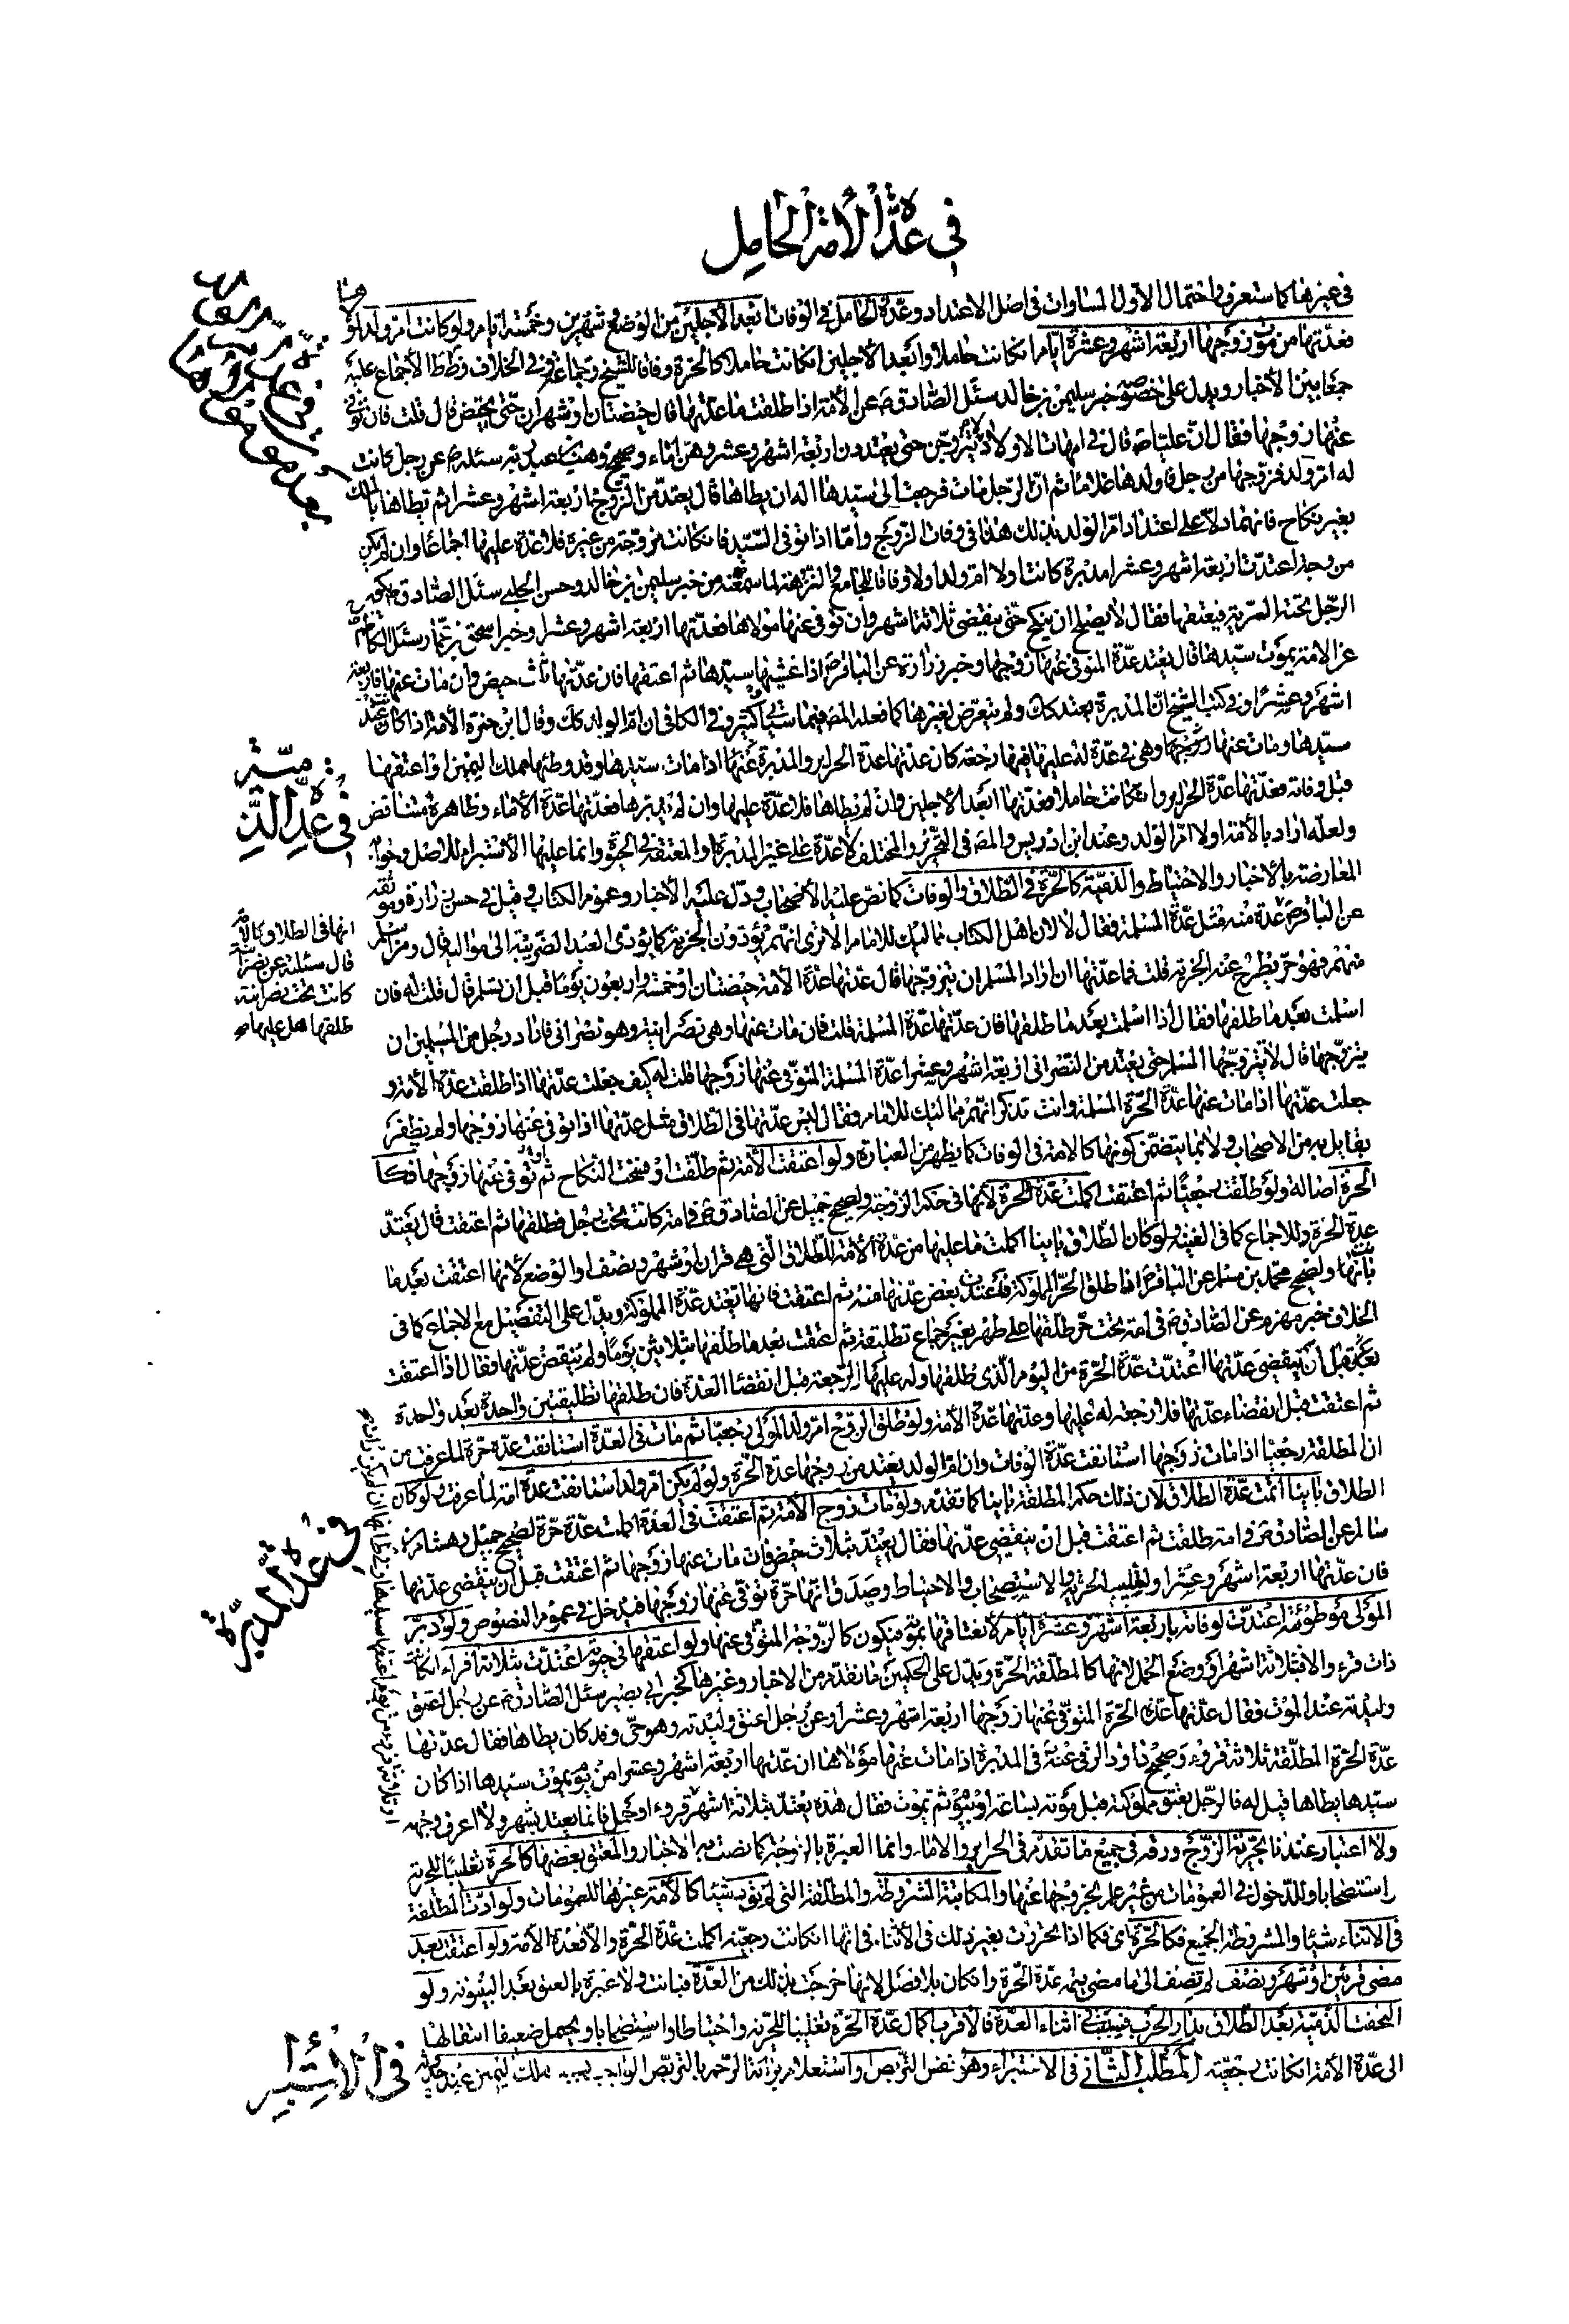 في عدة الأمة الحامل
في غيرها كما ستعرف واحتمال الأول لمساوات في اصل الاعتداد وعدة الحامل في الوفات ابعد الأجلين من الوضع وشهرين وخمسة ايام ولو كانت ام ولد لمولاها
فعدتها من موت زوجها اربعة اشهر وعشرة ايام ان كانت حاملا او ابعد الأجلين ان كانت حاملا كالحرة وفاقا للشيخ وجماعة وفي الخلاف وظ ط الأجماع عليه
جمعا بين الأخبار ويدل على خصوصه خبر سليمن بن خالد سئل الصادق ع عن الأمة اذا طلقت ما عدتها قال حيضتان او شهران حتى تحيض قال قلت فان توفي
عنها زوجها فقال ان عليا ع قال في امهات الاولاد لا يتزوجن حتى يعتددن اربعة اشهر وعشر وهن اماء وصحيح وهب بن عبد ربه سئله ع عن رجل كانت
له ام ولد فزوجها من رجل فاولدها غلاما ثم ان الرجل مات فرجعت الى سيدها اله ان يطاها قال يعتد من الزوج اربعة اشهر وعشر ثم يطاها بالملك
بغير نكاح فانهما دلا على اعتداد ام الولد بذلك هذا في وفات الزوج واما اذا توفي السيد فان كانت مزوجة من غيره فلا عدة عليها اجماعا وان لم يكن
مزوجة اعتدت اربعة اشهر وعشرا مدبرة كانت او لا ام ولد او لا وفاقا للجامع والنزهة لما سمعته من خبر سليمن بن خالد وحسن الحلبي سئل الصادق ع يكون
الرجل تحته السرية فيعتقها فقال لا يصلح ان ينكح حتى ينقضي ثلاثة اشهر وان توفي عنها مولاها فعدتها اربعة اشهر وعشر وخبر اسحق بن عمار سئل الكاظم ع
عن الامة يموت سيدها قال يعتد عدة المتوفى عنها زوجها وخبر زرارة عن الباقر ع اذا غشيها سيدها ثم اعتقها فان عدتها ثلث حيض وان مات عنها فاربعة
اشهر وعشرا وفي كتب الشيخ ان المدبرة يعتد كك ولم يتعرض لغيرها كما فعله المص فيما سياتي وفي الكافي ان ام الولد كك وقال ابن حمزة الأمة اذا كانت عند
سيدها ومات عنها زوجها وهي في عدة له عليها فيها رجعة كان عدتها عدة الحراير والمدبرة عنها اذا مات سيدها وقد وطئها بملك اليمين او اعتقها
قبل وفاته فعدتها عدة الحراير وان كانت حاملا فعدتها ابعد الأجلين وان لم يطاها فلا عدة عليها وان لم يدبرها فعدتها عدة الأماء وظاهره متناقض
ولعله اراد بالأمة اولا ام الولد وعند ابن ادريس والمص في التحرير والمختلف لا عدة على غير المدبرة او المعتقة في الحيوة وانما عليها الأستبراء للاصل وجوابه
المعارضة بالأخبار والاحتياط والذمية كالحرة في الطلاق والوفات كما نص عليه الأصحاب ودل عليه الأخبار وعموم الكتاب وقيل في حسن زرارة وموثقه
عن الباقر ع عدة منه مثل عدة المسلمة فقال لا لان اهل الكتاب مماليك للامام الا ترى انهم يؤدون الجزية كما يؤدى العبد الضريبة الى مواليه قال ومن اسلم
منهم فهو حر يطرح عنه الجزية قلت فما عدتها ان اراد المسلم ان يتزوجها قال عدتها عدة الأمة حيضتان او خمسة واربعون يوما قبل ان تسلم قال قلت له فان
اسلمت بعد ما طلقها فقال اذا اسلمت بعد ما طلقها فان عدتها عدة المسلمة قلت فان مات عنها وهي نصرانية وهو نصراني فاراد رجل من المسلمين ان
يتزوجها قال لا يتزوجها المسلم حتى يعتد من النصراني اربعة اشهر وعشرا عدة المسلمة المتوفى عنها زوجها قلت له كيف جعلت عدتها اذا طلقت عدة الأمة و
جعلت عدتها اذا مات عنها عدة الحرة المسلمة وانت تذكر انهم مماليك للامام فقال ليس عدتها في الطلاق مثل عدتها اذا توفي عنها زوجها ولم يظفر
بقايل به من الاصحاب ولا بما يتضمن كونها كالامة في الوفات كما يظهر من العبارة ولو اعتقت الأمة ثم طلقت او فسخت النكاح ثم توفي عنها زوجها فكا
الحرة اصالة ولو طلقت رجعيا ثم اعتقت اكملت عدة الحرة لأنها في حكم الزوجة ولصحيح جميل عن الصادق ع في امة كانت تحت رجل فطلقها ثم اعتقت قال يعتد
عدة الحرة وللاجماع كما في الغنية ولو كان الطلاق باينا اكملت ما عليها من عدة الأمة للطلاق التي هي قرآن او شهر ونصف او الوضع لأنها اعتقت بعد ما
بانتها ولصحيح محمد بن مسلم عن الباقر ع اذا طلق الحر المملوكة فاعتدت بعض عدتها منه ثم اعتقت فانها تعتد عدة المملوكة ويدل على التفصيل مع الاجماع كما في
الخلاف خبر مهزم عن الصادق ع في امة تحت حر طلقها على طهر بغير جماع تطليقة ثم اعتقت بعد ما طلقها بثلاثين يوما ولم ينقض عدتها فقال اذا اعتقت
قبل ان ينقضي عدتها اعتدت عدة الحرة من اليوم الذي طلقها وله عليها الرجعة قبل انقضاء العدة فان طلقها تطليقتين واحدة بعد واحدة
ثم اعتقت قبل انقضاء عدتها فلا رجعة له عليها وعدتها عدة الأمة ولو طلق الزوج ام ولد المولى رجعيا ثم مات في العدة استانفت عدة حرة لما عرفت من
ان المطلقة رجعيا اذا مات زوجها استانفت عدة الوفات وان ام الولد يعتد من زوجها عدة الحرة ولو لم يكن ام ولد استانفت عدة امة لما عرفت ولو كان
الطلاق باينا اتمت عدة الطلاق لان ذلك حكم المطلقة باينا كما تقدم ولو مات زوج الأمة ثم اعتقت في العدة اكملت عدة حرة لصحيح جميل وهشام بن
سالم عن الصادق ع في امة طلقت ثم اعتقت قبل ان ينقضي عدتها فقال يعتد بثلاث حيض فان مات عنها زوجها ثم اعتقت قبل ان ينقضي عدتها
فان عدتها اربعة اشهر وعشرا ولتغليب الحرية والاستصحاب والاحتياط وصدق انها حرة توفي عنها زوجها فيدخل في عموم النصوص ولو دبر
المولى موطوئته اعتدت لوفاته باربعة اشهر وعشرة ايام لانعتاقها بموته فيكون كالزوجة المتوفى عنها ولو اعتقها في حيوته اعتدت بثلاثة اقراء ان كانت
ذات قرء والا فبثلاثة اشهر او وضع الحمل لانها كالمطلقة الحرة ويدل على الحكمين ما تقدم من الاخبار وغيرها كخبر ابي بصير سئل الصادق ع عن رجل اعتق
وليدته عند الموت فقال عدتها عدة الحرة المتوفى عنها زوجها اربعة اشهر وعشرا وعن رجل اعتق وليدته وهو حي وقد كان يطاها فقال عدتها
عدة الحرة المطلقة ثلاثة قروء وصحيح داود الرقي عنه ع في المدبرة اذا مات عنها مولاها ان عدتها اربعة اشهر وعشرا من يوم يموت سيدها اذا كان
سيدها يطاها قيل له فالرجل يعتق مملوكته قبل موته بساعة او يوم ثم يموت فقال هذه يعتد بثلاثة اشهر قروء او حمل فانما يعتد بشهر ولا اعرف وجهه
ولا اعتبار عندنا بحرية الزوج ورقه في جميع ما تقدم في الحراير والاماء وانما العبرة بالزوجة كما نصت به الاخبار والمعتق بعضها كالحرة تغليبا للحرية
واستصحابا وللدخول في العمومات من غير علم بخروجها عنها والمكاتبة المشروطة والمطلقة التي لم تؤد شيئا كالأمة غيرهما للعمومات ولو ادت المطلقة
في الاثناء شيئا والمشروطة الجميع فكالحرة اى فكما اذا تحررت بغير ذلك في الأثناء في انها ان كانت رجعية اكملت عدة الحرة والا فعدة الأمة ولو اعتقت بعد
مضى قرئين او شهر ونصف لم تضف الى ما مضى تتمة عدة الحرة وان كان بلا فصل لانها خرجت بذلك من العدة فبانت ولا عبرة بالعتق بعد البينونة ولو
التحقت الذمية بعد الطلاق بدار الحرب فسبيت في اثناء العدة فالأقرب اكمال عدة الحرة تغليبا للحرية واحتياطا واستصحابا ويحتمل ضعيفا انتقالها
الى عدة الأمة ان كانت رجعية المطلب الثاني في الاستبراء وهو نفس التربص واستعلام براءة الرحم بالتربص الواجب بسبب ملك اليمين عند حدوثه
في عدة الذمية
انها في الطلاق كالأمة
قال سئلته عن نصرانية
كانت تحت نصراني
طلقها هل عليها ع
في عدة المدبرة
في الأستبراء